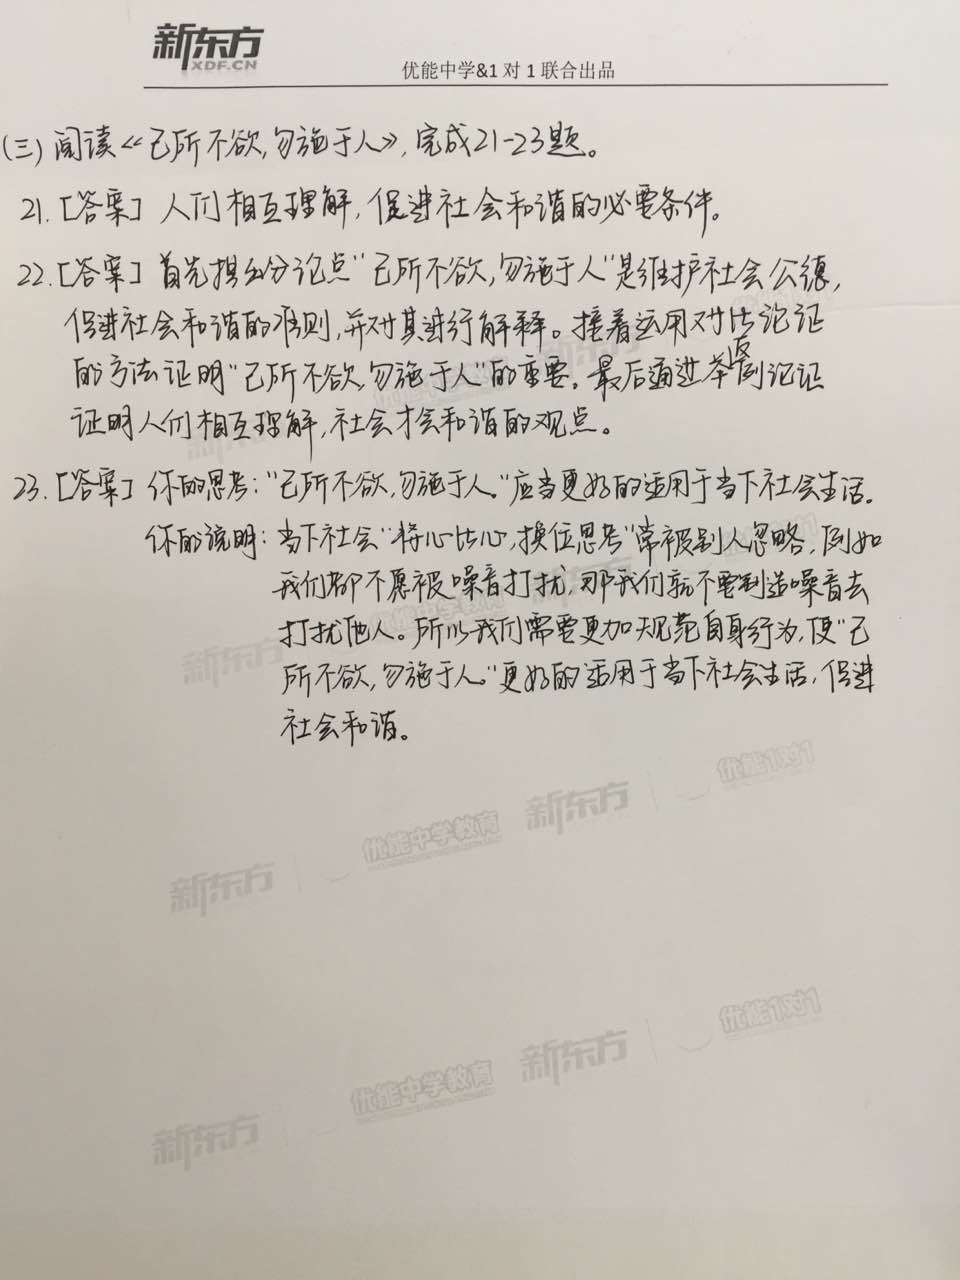 新东方
XDF.CN
优能中学&1 对 1 联合出品
(三) 阅读《己所不欲,勿施于人》,完成21-23题。
21.[答案] 人们相互理解,促进社会和谐的必要条件。
22.[答案] 首先提出分论点"己所不欲,勿施于人"是维护社会公德,
促进社会和谐的准则,并对其进行解释。接着运用对比论证
的方法证明"己所不欲,勿施于人"的重要。最后通过举反例论证
证明人们相互理解,社会才会和谐的观点。
23.[答案] 你的思考:"己所不欲,勿施于人。"应当更好的适用于当下社会生活。
你的说明:当下社会"将心比心,换位思考"常被别人忽略,例如
我们都不愿被噪音打扰,那我们就不要制造噪音去
打扰他人。所以我们需要更加规范自身行为,使"己
所不欲,勿施于人。"更好的适用于当下社会生活,促进
社会和谐。
优能1对1
新东方
优能中学教育
新东方
优能1对1
新东方
优能中学教育
新东方